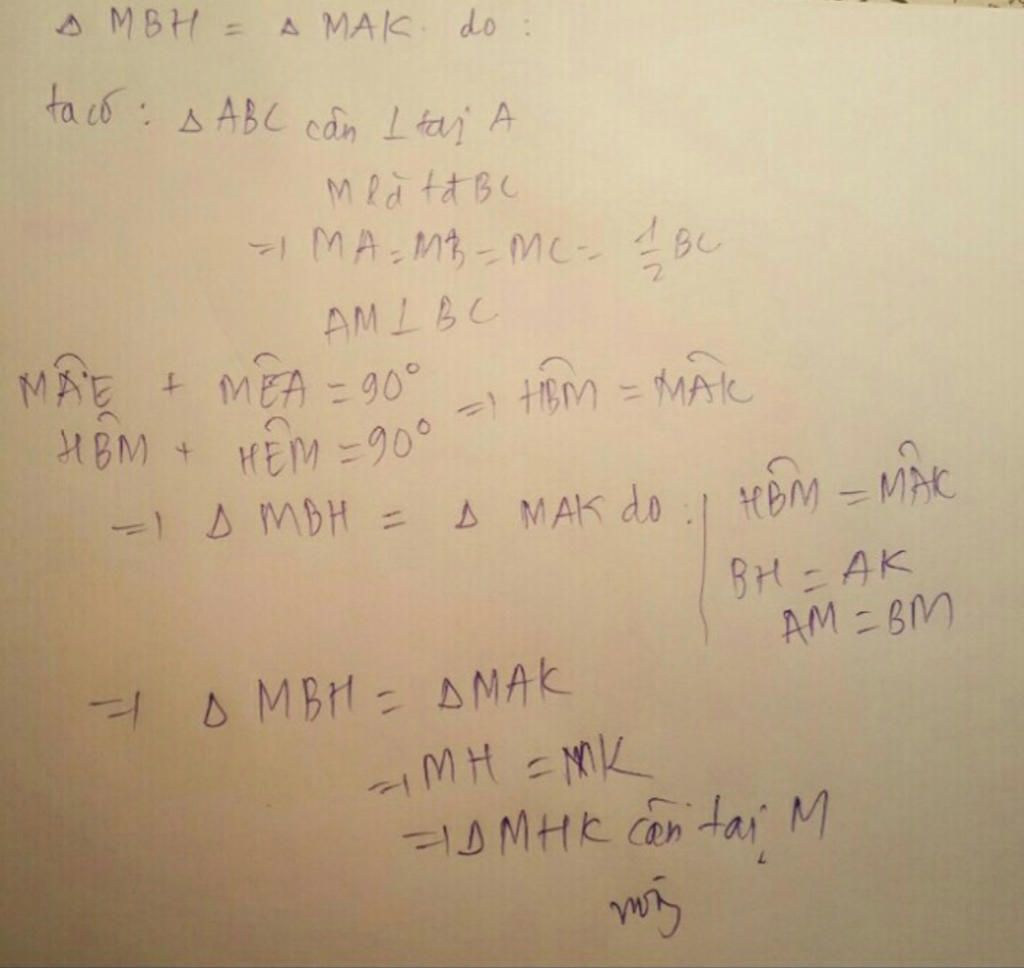 Δ MBH = Δ MAK. do :
ta có : Δ ABC cân ⊥ tại A
M là tđ BC
=> MA = MB = MC = 1/2 BC
AM ⊥ BC
MÂE + MÊA = 90°
HB̂M + HÊM = 90° => HB̂M = MÂK
=> Δ MBH = Δ MAK do : HB̂M = MÂK
BH = AK
AM = BM
=> Δ MBH = Δ MAK
=> MH = MK
=> Δ MHK cân tại M